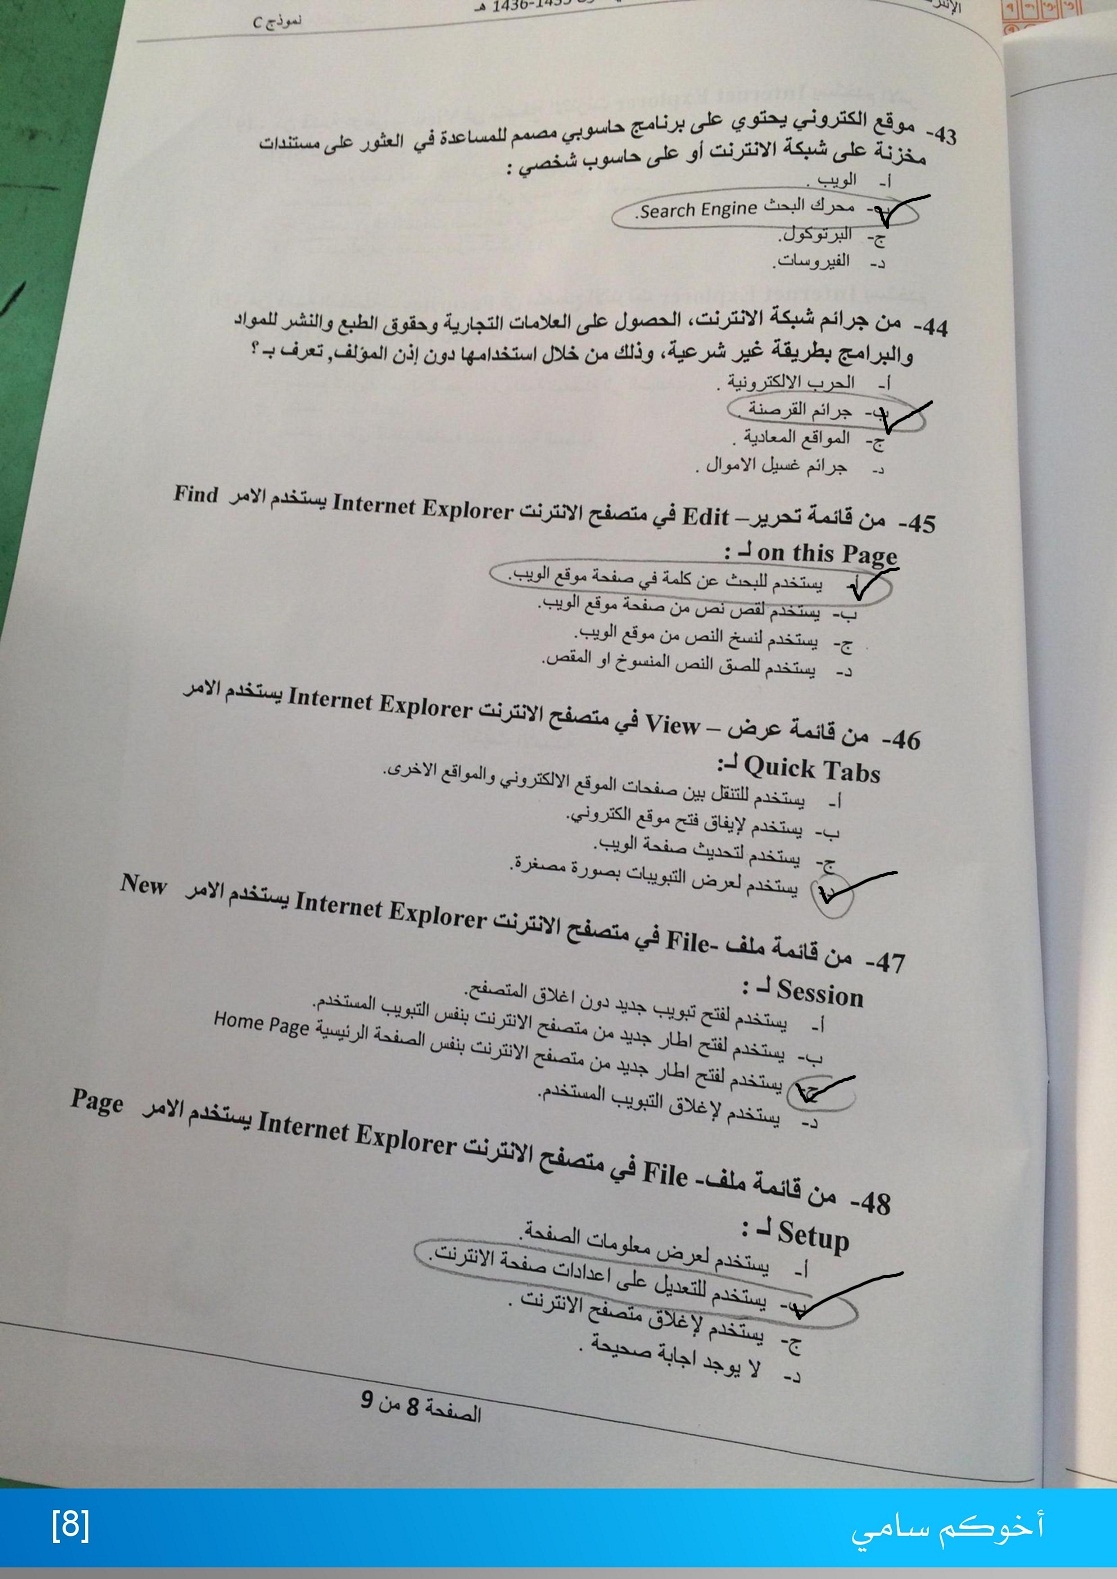 نموذج C
1435-1436 هـ
43- موقع الكتروني يحتوي على برنامج حاسوبي مصمم للمساعدة في العثور على مستندات
مخزنة على شبكة الانترنت أو على حاسوب شخصي :
أ- الويب .
ب- محرك البحث Search Engine.
ج- البرتوكول.
د- الفيروسات.
44- من جرائم شبكة الانترنت، الحصول على العلامات التجارية وحقوق الطبع والنشر للمواد
والبرامج بطريقة غير شرعية، وذلك من خلال استخدامها دون إذن المؤلف, تعرف بـ ؟
أ- الحرب الالكترونية .
ب- جرائم القرصنة .
ج- المواقع المعادية .
د- جرائم غسيل الاموال .
45- من قائمة تحرير– Edit في متصفح الانترنت Internet Explorer يستخدم الامر Find
on this Page لـ :
أ- يستخدم للبحث عن كلمة في صفحة موقع الويب.
ب- يستخدم لقص نص من صفحة موقع الويب.
ج- يستخدم لنسخ النص من موقع الويب.
د- يستخدم للصق النص المنسوخ او المقص.
46- من قائمة عرض – View في متصفح الانترنت Internet Explorer يستخدم الامر
Quick Tabs لـ:
أ- يستخدم للتنقل بين صفحات الموقع الالكتروني والمواقع الاخرى.
ب- يستخدم لإيفاق فتح موقع الكتروني.
ج- يستخدم لتحديث صفحة الويب.
د- يستخدم لعرض التبويبات بصورة مصغرة.
47- من قائمة ملف -File في متصفح الانترنت Internet Explorer يستخدم الامر New
Session لـ :
أ- يستخدم لفتح تبويب جديد دون اغلاق المتصفح.
ب- يستخدم لفتح اطار جديد من متصفح الانترنت بنفس التبويب المستخدم.
ج- يستخدم لفتح اطار جديد من متصفح الانترنت بنفس الصفحة الرئيسية Home Page
د- يستخدم لإغلاق التبويب المستخدم.
48- من قائمة ملف- File في متصفح الانترنت Internet Explorer يستخدم الامر Page
Setup لـ :
أ- يستخدم لعرض معلومات الصفحة.
ب- يستخدم للتعديل على اعدادات صفحة الانترنت.
ج- يستخدم لإغلاق متصفح الانترنت .
د- لا يوجد اجابة صحيحة .
الصفحة 8 من 9
أخوكم سامي
[8]